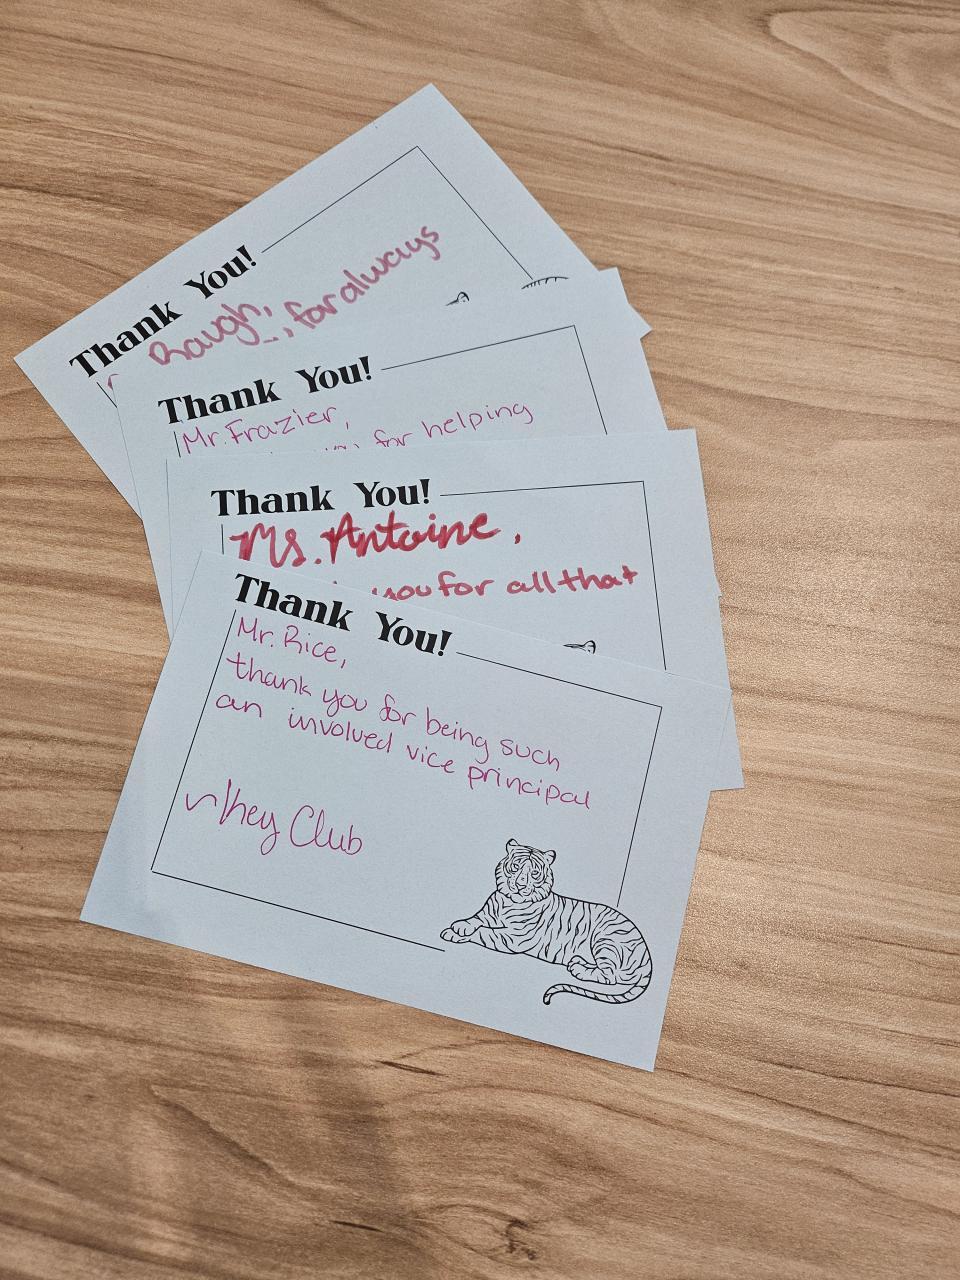 Thank You!
for always
Thank You!
Mr. Frazier,
for helping
Thank You!
Ms. Antoine,
you for all that
Thank You!
Mr. Rice,
thank you for being such
an involved vice principal
~Key Club